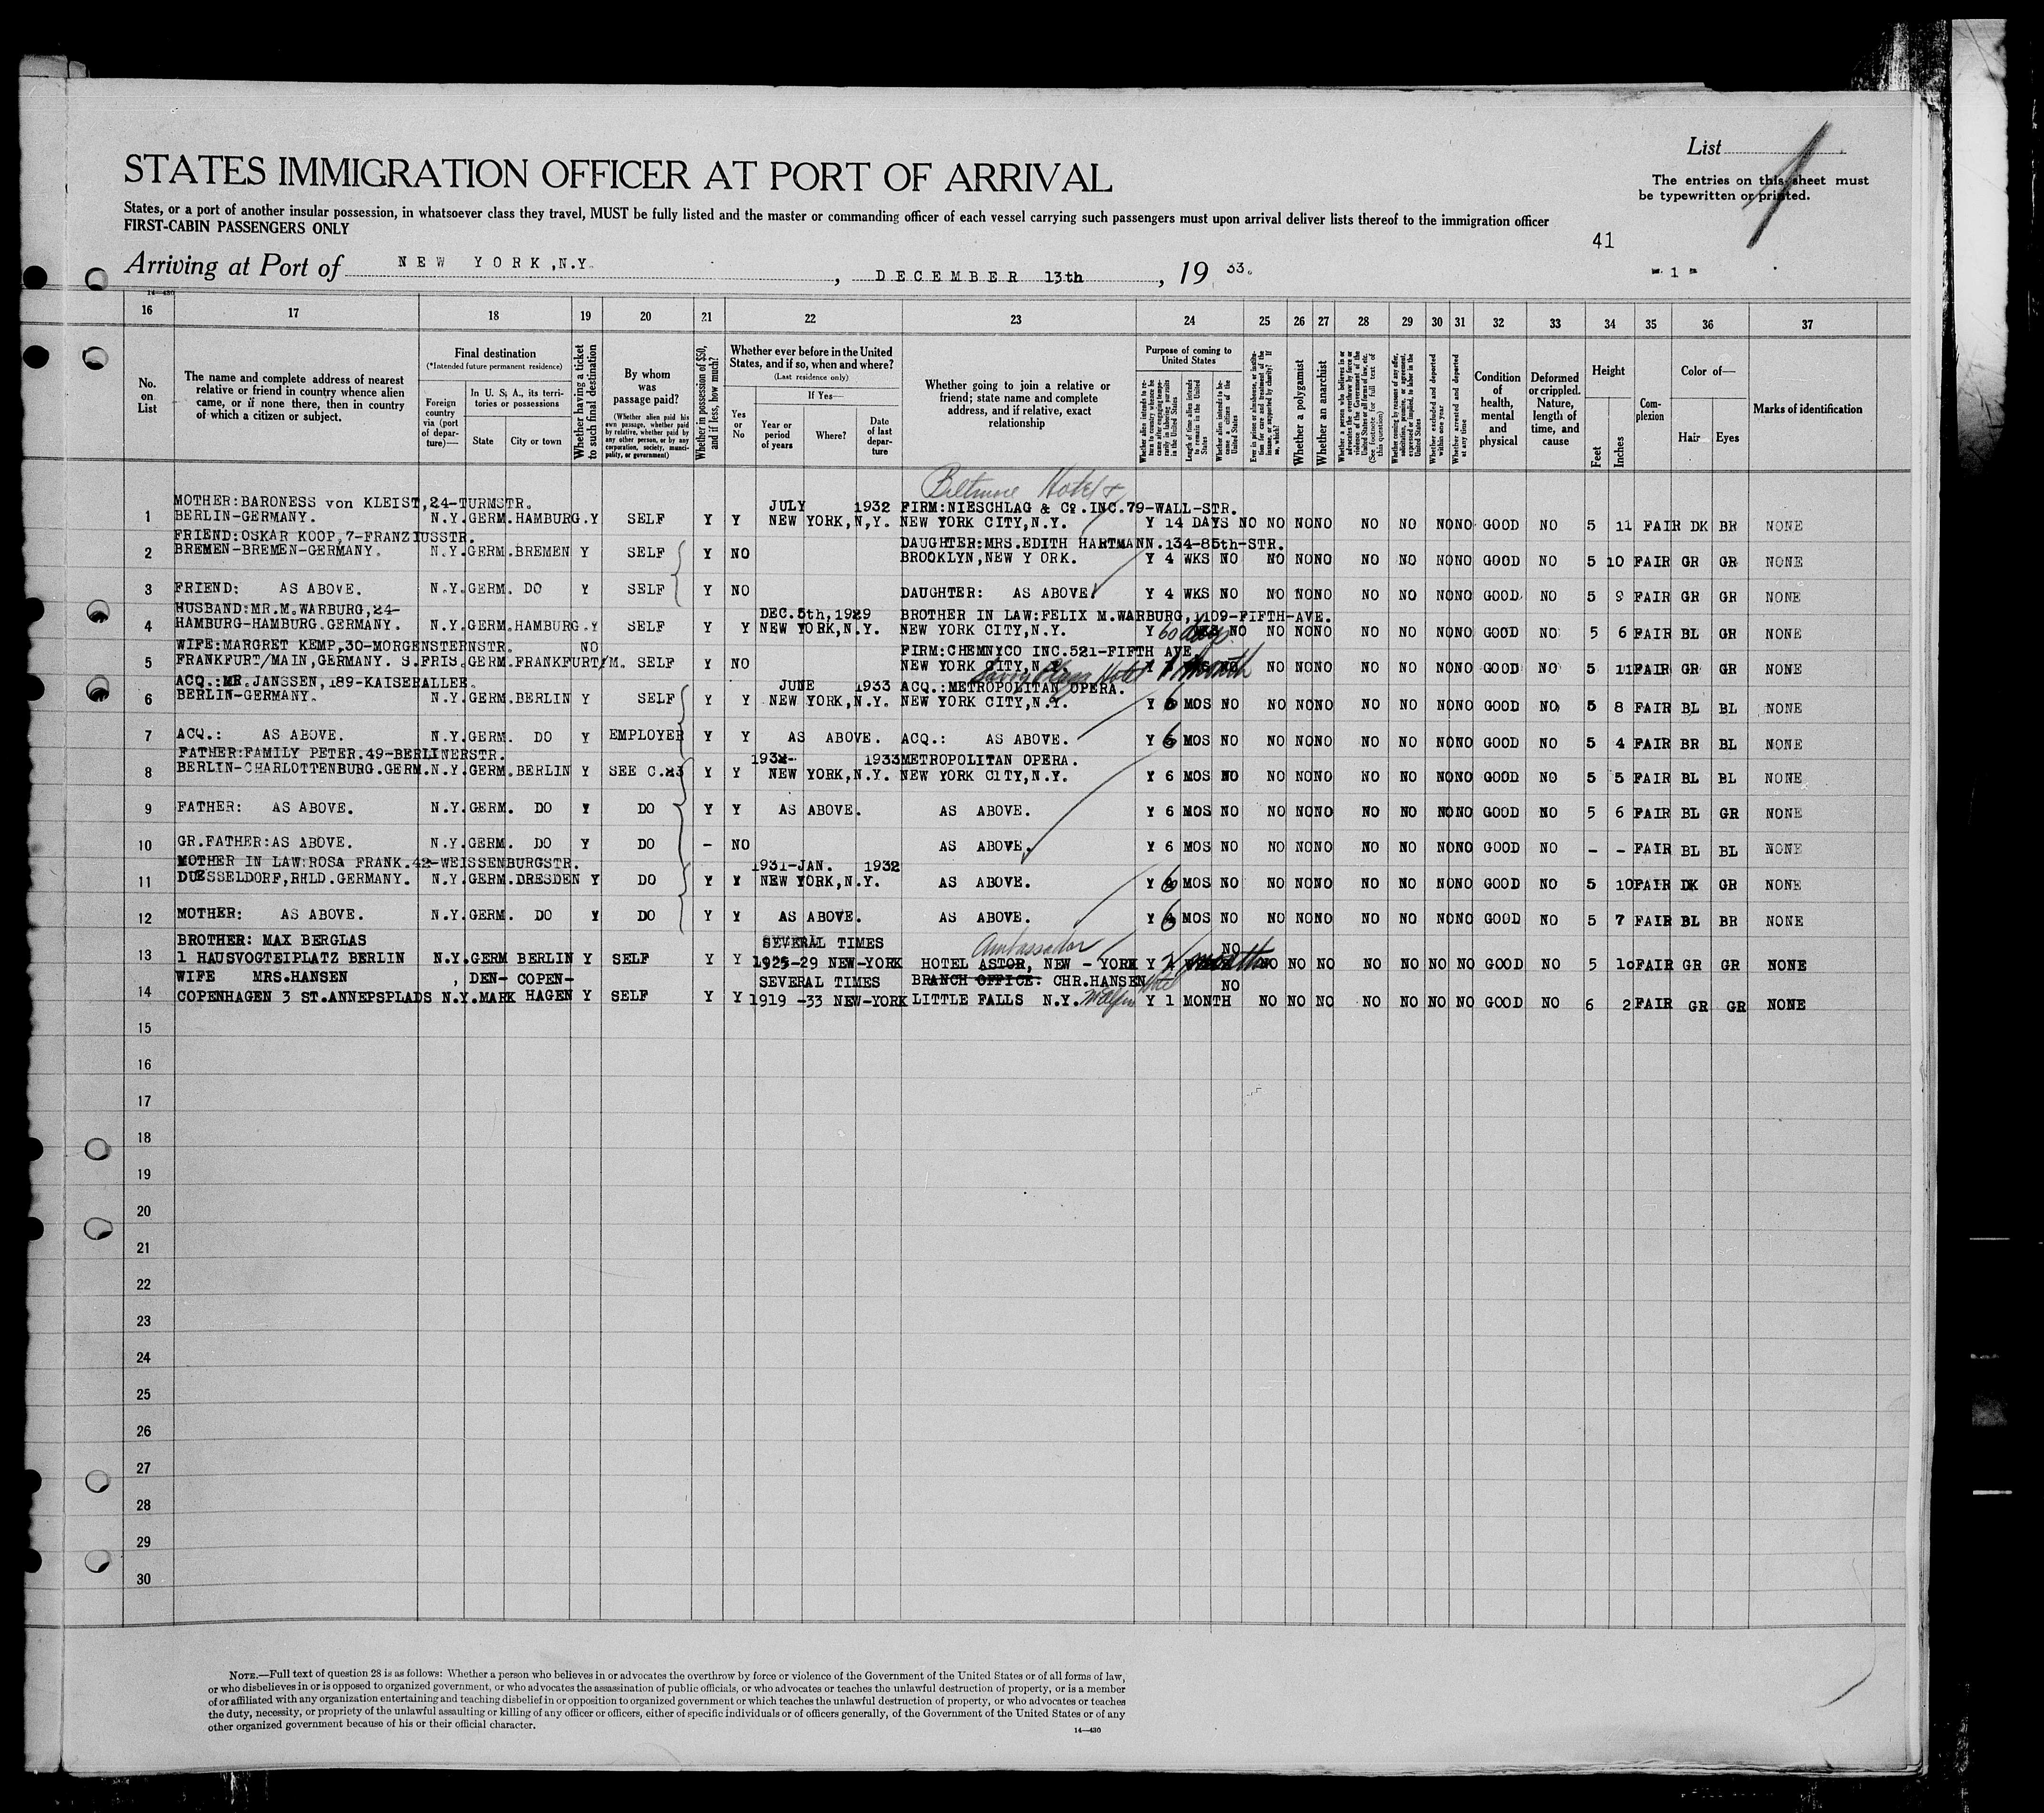 List
STATES IMMIGRATION OFFICER AT PORT OF ARRIVAL
The entries on this sheet must
be typewritten or printed.
States, or a port of another insular possession, in whatsoever class they travel, MUST be fully listed and the master or commanding officer of each vessel carrying such passengers must upon arrival deliver lists thereof to the immigration officer
FIRST-CABIN PASSENGERS ONLY
41
Arriving at Port of NEW YORK, N.Y. , DECEMBER 13th , 19 33.
- 1 -
14-430
16 17 18 19 20 21 22 23 24 25 26 27 28 29 30 31 32 33 34 35 36 37
No. on List
The name and complete address of nearest relative or friend in country whence alien came, or if none there, then in country of which a citizen or subject.
Final destination
(*Intended future permanent residence)
Foreign country via (port of departure)—
In U. S. A., its territories or possessions
State
City or town
Whether having a ticket to such final destination
By whom was passage paid?
(Whether alien paid his own passage, whether paid by relative, whether paid by any other person, or by any corporation, society, municipality, or government)
Whether in possession of $50, and if less, how much?
Whether ever before in the United States, and if so, when and where?
(Last residence only)
Yes or No
If Yes—
Year or period of years
Where?
Date of last departure
Whether going to join a relative or friend; state name and complete address, and if relative, exact relationship
Purpose of coming to United States
Whether alien intends to return to country whence he came after engaging temporarily in laboring pursuits in the United States
Length of time alien intends to remain in the United States
Whether alien intends to become a citizen of the United States
Ever in prison or almshouse, or institution for care and treatment of the insane, or supported by charity? If so, which?
Whether a polygamist
Whether an anarchist
Whether a person who believes in or advocates the overthrow by force or violence of the Government of the United States or all forms of law, etc. (See footnote for full text of this question)
Whether coming by reason of any offer, solicitation, promise, or agreement, expressed or implied, to labor in the United States
Whether excluded and deported within one year
Whether arrested and deported at any time
Condition of health, mental and physical
Deformed or crippled. Nature, length of time, and cause
Height
Feet
Inches
Complexion
Color of—
Hair
Eyes
Marks of identification
Biltmore Hotel &
MOTHER:BARONESS von KLEIST,24-TURMSTR. JULY 1932 FIRM:NIESCHLAG & Co.INC.79-WALL-STR.
1 BERLIN-GERMANY. N.Y.GERM.HAMBURG.Y SELF Y Y NEW YORK,N,Y. NEW YORK CITY,N.Y. Y 14 DAYS NO NO NO NO NO NO NO NO GOOD NO 5 11 FAIR DK BR NONE
FRIEND:OSKAR KOOP,7-FRANZIUSSTR. DAUGHTER:MRS.EDITH HARTMANN.134-85th-STR.
2 BREMEN-BREMEN-GERMANY. N.Y.GERM.BREMEN Y SELF Y NO BROOKLYN,NEW Y ORK. Y 4 WKS NO NO NO NO NO NO NO NO GOOD NO 5 10 FAIR GR GR NONE
3 FRIEND: AS ABOVE. N.Y.GERM. DO Y SELF Y NO DAUGHTER: AS ABOVE Y 4 WKS NO NO NO NO NO NO NO NO GOOD NO 5 9 FAIR GR GR NONE
HUSBAND:MR.M.WARBURG,24- DEC.5th,1929 BROTHER IN LAW:FELIX M.WARBURG,1109-FIFTH-AVE.
4 HAMBURG-HAMBURG.GERMANY. N.Y.GERM.HAMBURG.Y SELF Y Y NEW YORK,N.Y. NEW YORK CITY,N.Y. Y 60 days NO NO NO NO NO NO NO NO GOOD NO 5 6 FAIR BL GR NONE
WIFE:MARGRET KEMP,30-MORGENSTERNSTR. NO FIRM:CHEMNYCO INC.521-FIFTH AVE
5 FRANKFURT/MAIN,GERMANY. S.FRIS.GERM.FRANKFURT/M. SELF Y NO NEW YORK CITY,N.Y. Y 1 month NO NO NO NO NO NO NO GOOD NO 5 11 FAIR GR GR NONE
Savoy Plaza Hotel
ACQ.:MR.JANSSEN,189-KAISERALLEE. JUNE 1933 ACQ.:METROPOLITAN OPERA.
6 BERLIN-GERMANY. N.Y.GERM.BERLIN Y SELF Y Y NEW YORK,N.Y. NEW YORK CITY,N.Y. Y 6 MOS NO NO NO NO NO NO NO NO GOOD NO 5 8 FAIR BL BL NONE
7 ACQ.: AS ABOVE. N.Y.GERM. DO Y EMPLOYER Y Y AS ABOVE. ACQ.: AS ABOVE. Y 6 MOS NO NO NO NO NO NO NO NO GOOD NO 5 4 FAIR BR BL NONE
FATHER:FAMILY PETER.49-BERLINERSTR. 1932- 1933 METROPOLITAN OPERA.
8 BERLIN-CHARLOTTENBURG.GERM.N.Y.GERM.BERLIN Y SEE C.23 Y Y NEW YORK,N.Y. NEW YORK CITY,N.Y. Y 6 MOS NO NO NO NO NO NO NO NO GOOD NO 5 5 FAIR BL BL NONE
9 FATHER: AS ABOVE. N.Y.GERM. DO Y DO Y Y AS ABOVE. AS ABOVE. Y 6 MOS NO NO NO NO NO NO NO NO GOOD NO 5 6 FAIR BL GR NONE
10 GR.FATHER:AS ABOVE. N.Y.GERM. DO Y DO - NO AS ABOVE. Y 6 MOS NO NO NO NO NO NO NO NO GOOD NO - - FAIR BL BL NONE
MOTHER IN LAW:ROSA FRANK.42-WEISSENBURGSTR. 1931-JAN. 1932
11 DUESSELDORF,RHLD.GERMANY. N.Y.GERM.DRESDEN Y DO Y Y NEW YORK,N.Y. AS ABOVE. Y 6 MOS NO NO NO NO NO NO NO NO GOOD NO 5 10 FAIR DK GR NONE
12 MOTHER: AS ABOVE. N.Y.GERM. DO Y DO Y Y AS ABOVE. AS ABOVE. Y 6 MOS NO NO NO NO NO NO NO NO GOOD NO 5 7 FAIR BL BR NONE
BROTHER: MAX BERGLAS SEVERAL TIMES Ambassador NO
13 1 HAUSVOGTEIPLATZ BERLIN N.Y.GERM BERLIN Y SELF Y Y 1925-29 NEW-YORK HOTEL ASTOR, NEW - YORK Y 2 months NO NO NO NO NO NO NO GOOD NO 5 10 FAIR GR GR NONE
WIFE MRS.HANSEN , DEN- COPEN- SEVERAL TIMES BRANCH OFFICE: CHR.HANSEN Hotel NO
14 COPENHAGEN 3 ST.ANNEPSPLADS N.Y.MARK HAGEN Y SELF Y Y 1919 -33 NEW-YORK LITTLE FALLS N.Y. McAlpin Y 1 MONTH NO NO NO NO NO NO NO GOOD NO 6 2 FAIR GR GR NONE
15
16
17
18
19
20
21
22
23
24
25
26
27
28
29
30
NOTE.—Full text of question 28 is as follows: Whether a person who believes in or advocates the overthrow by force or violence of the Government of the United States or of all forms of law,
or who disbelieves in or is opposed to organized government, or who advocates the assassination of public officials, or who advocates or teaches the unlawful destruction of property, or is a member
of or affiliated with any organization entertaining and teaching disbelief in or opposition to organized government or which teaches the unlawful destruction of property, or who advocates or teaches
the duty, necessity, or propriety of the unlawful assaulting or killing of any officer or officers, either of specific individuals or of officers generally, of the Government of the United States or of any
other organized government because of his or their official character.
14-430